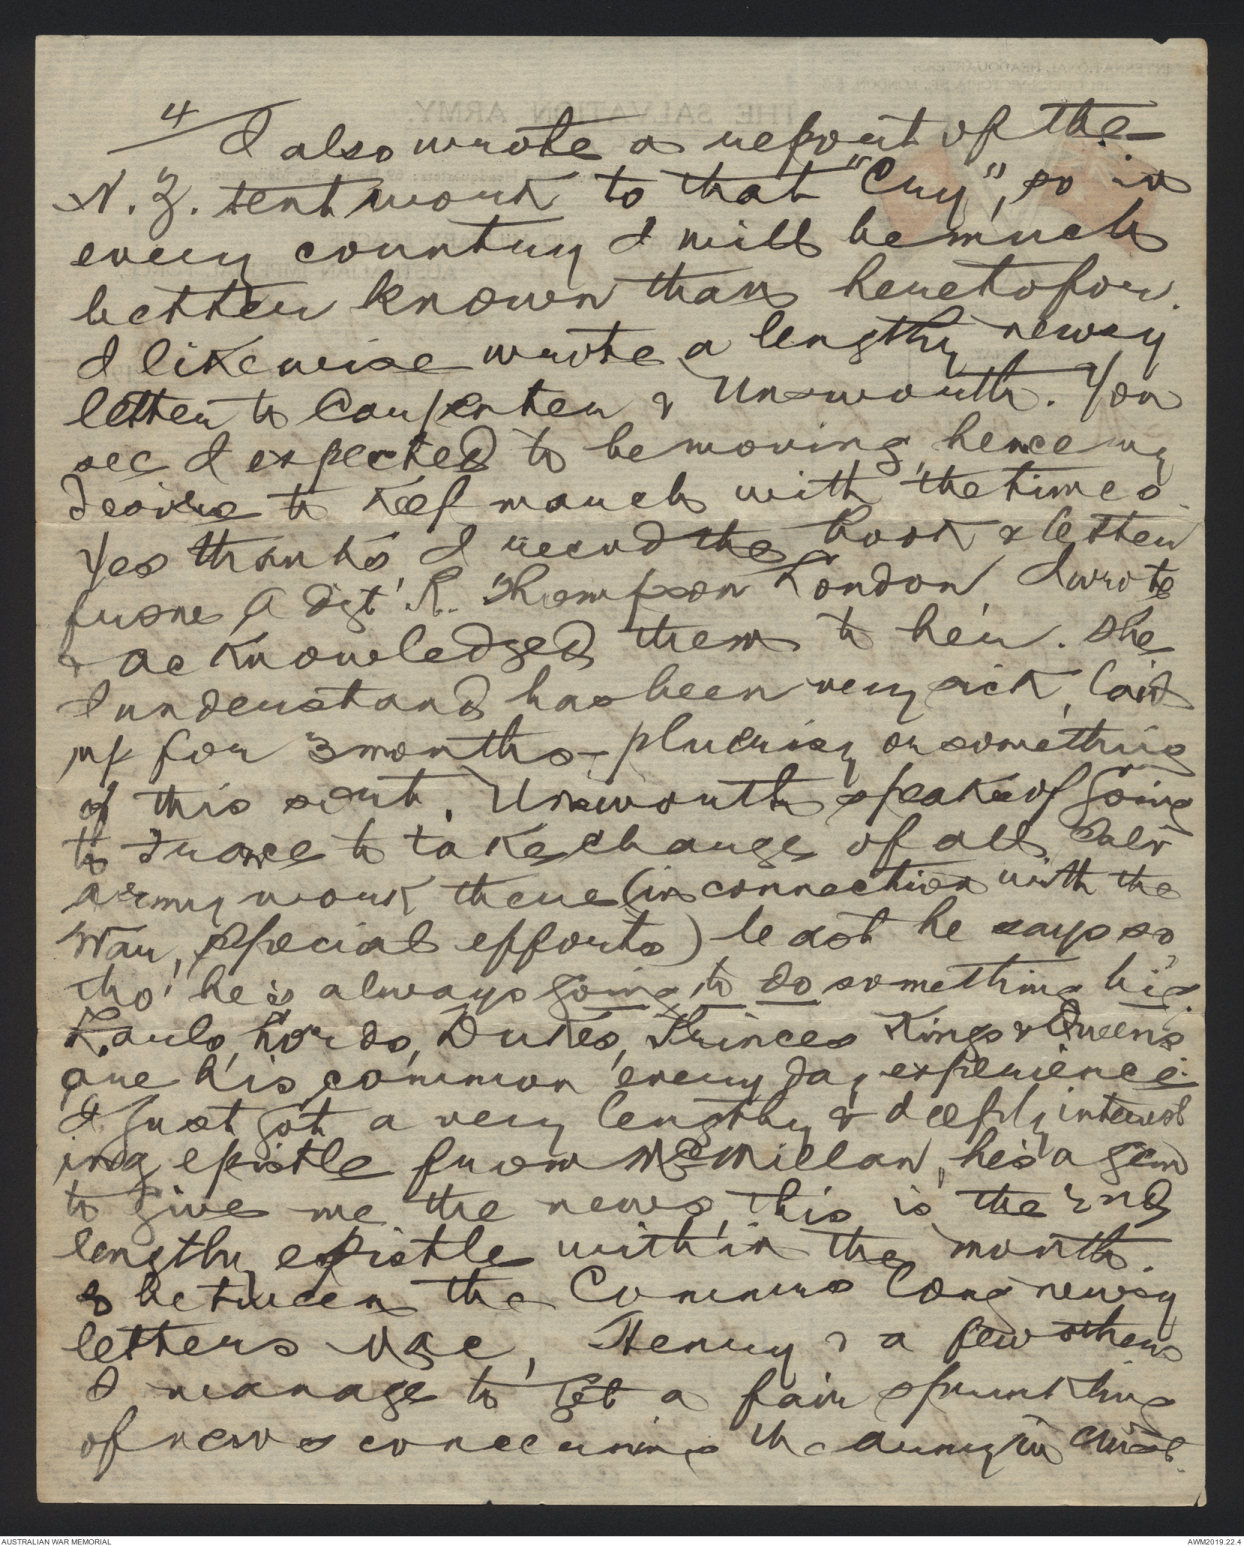 4
I also wrote a report of the
N.Z. tent work to that "Cry", so in
every country I will be much
better known than heretofore.
I likewise wrote a lengthy newsy
letter to Carpenter & Unsworth. You
see I expected to be moving, hence my
desire to keep march with the times
Yes thanks I recvd the book & letter
from Adgt. R. Thompson London, I wrote
& acknowledged them to her. She
I understand has been very sick, laid
up for 3 months - pluerisy or something
of this sort. Unsworth speaks of going
to France to take charge of all Salv
Army work there (in connection with the
War, special efforts) least he says so
tho' he is always going to do something big
Earls, Lords, Dukes, Princes Kings & Queens
are his common every day experience.
I just got a very lengthy & deeply interest
ing epistle from McMillan, he's a gem
to give me the news, this is the 2nd
lengthy epistle within the month
& between the Commrs long newsy
letters Mac, Henry & a few others
I manage to get a fair sprinkling
of news concerning the army in
THE SALVATION ARMY.
INTERNATIONAL HEADQUARTERS:
AUSTRALIAN IMPERIAL
AUSTRALIAN WAR MEMORIAL
AWM2019.22.4